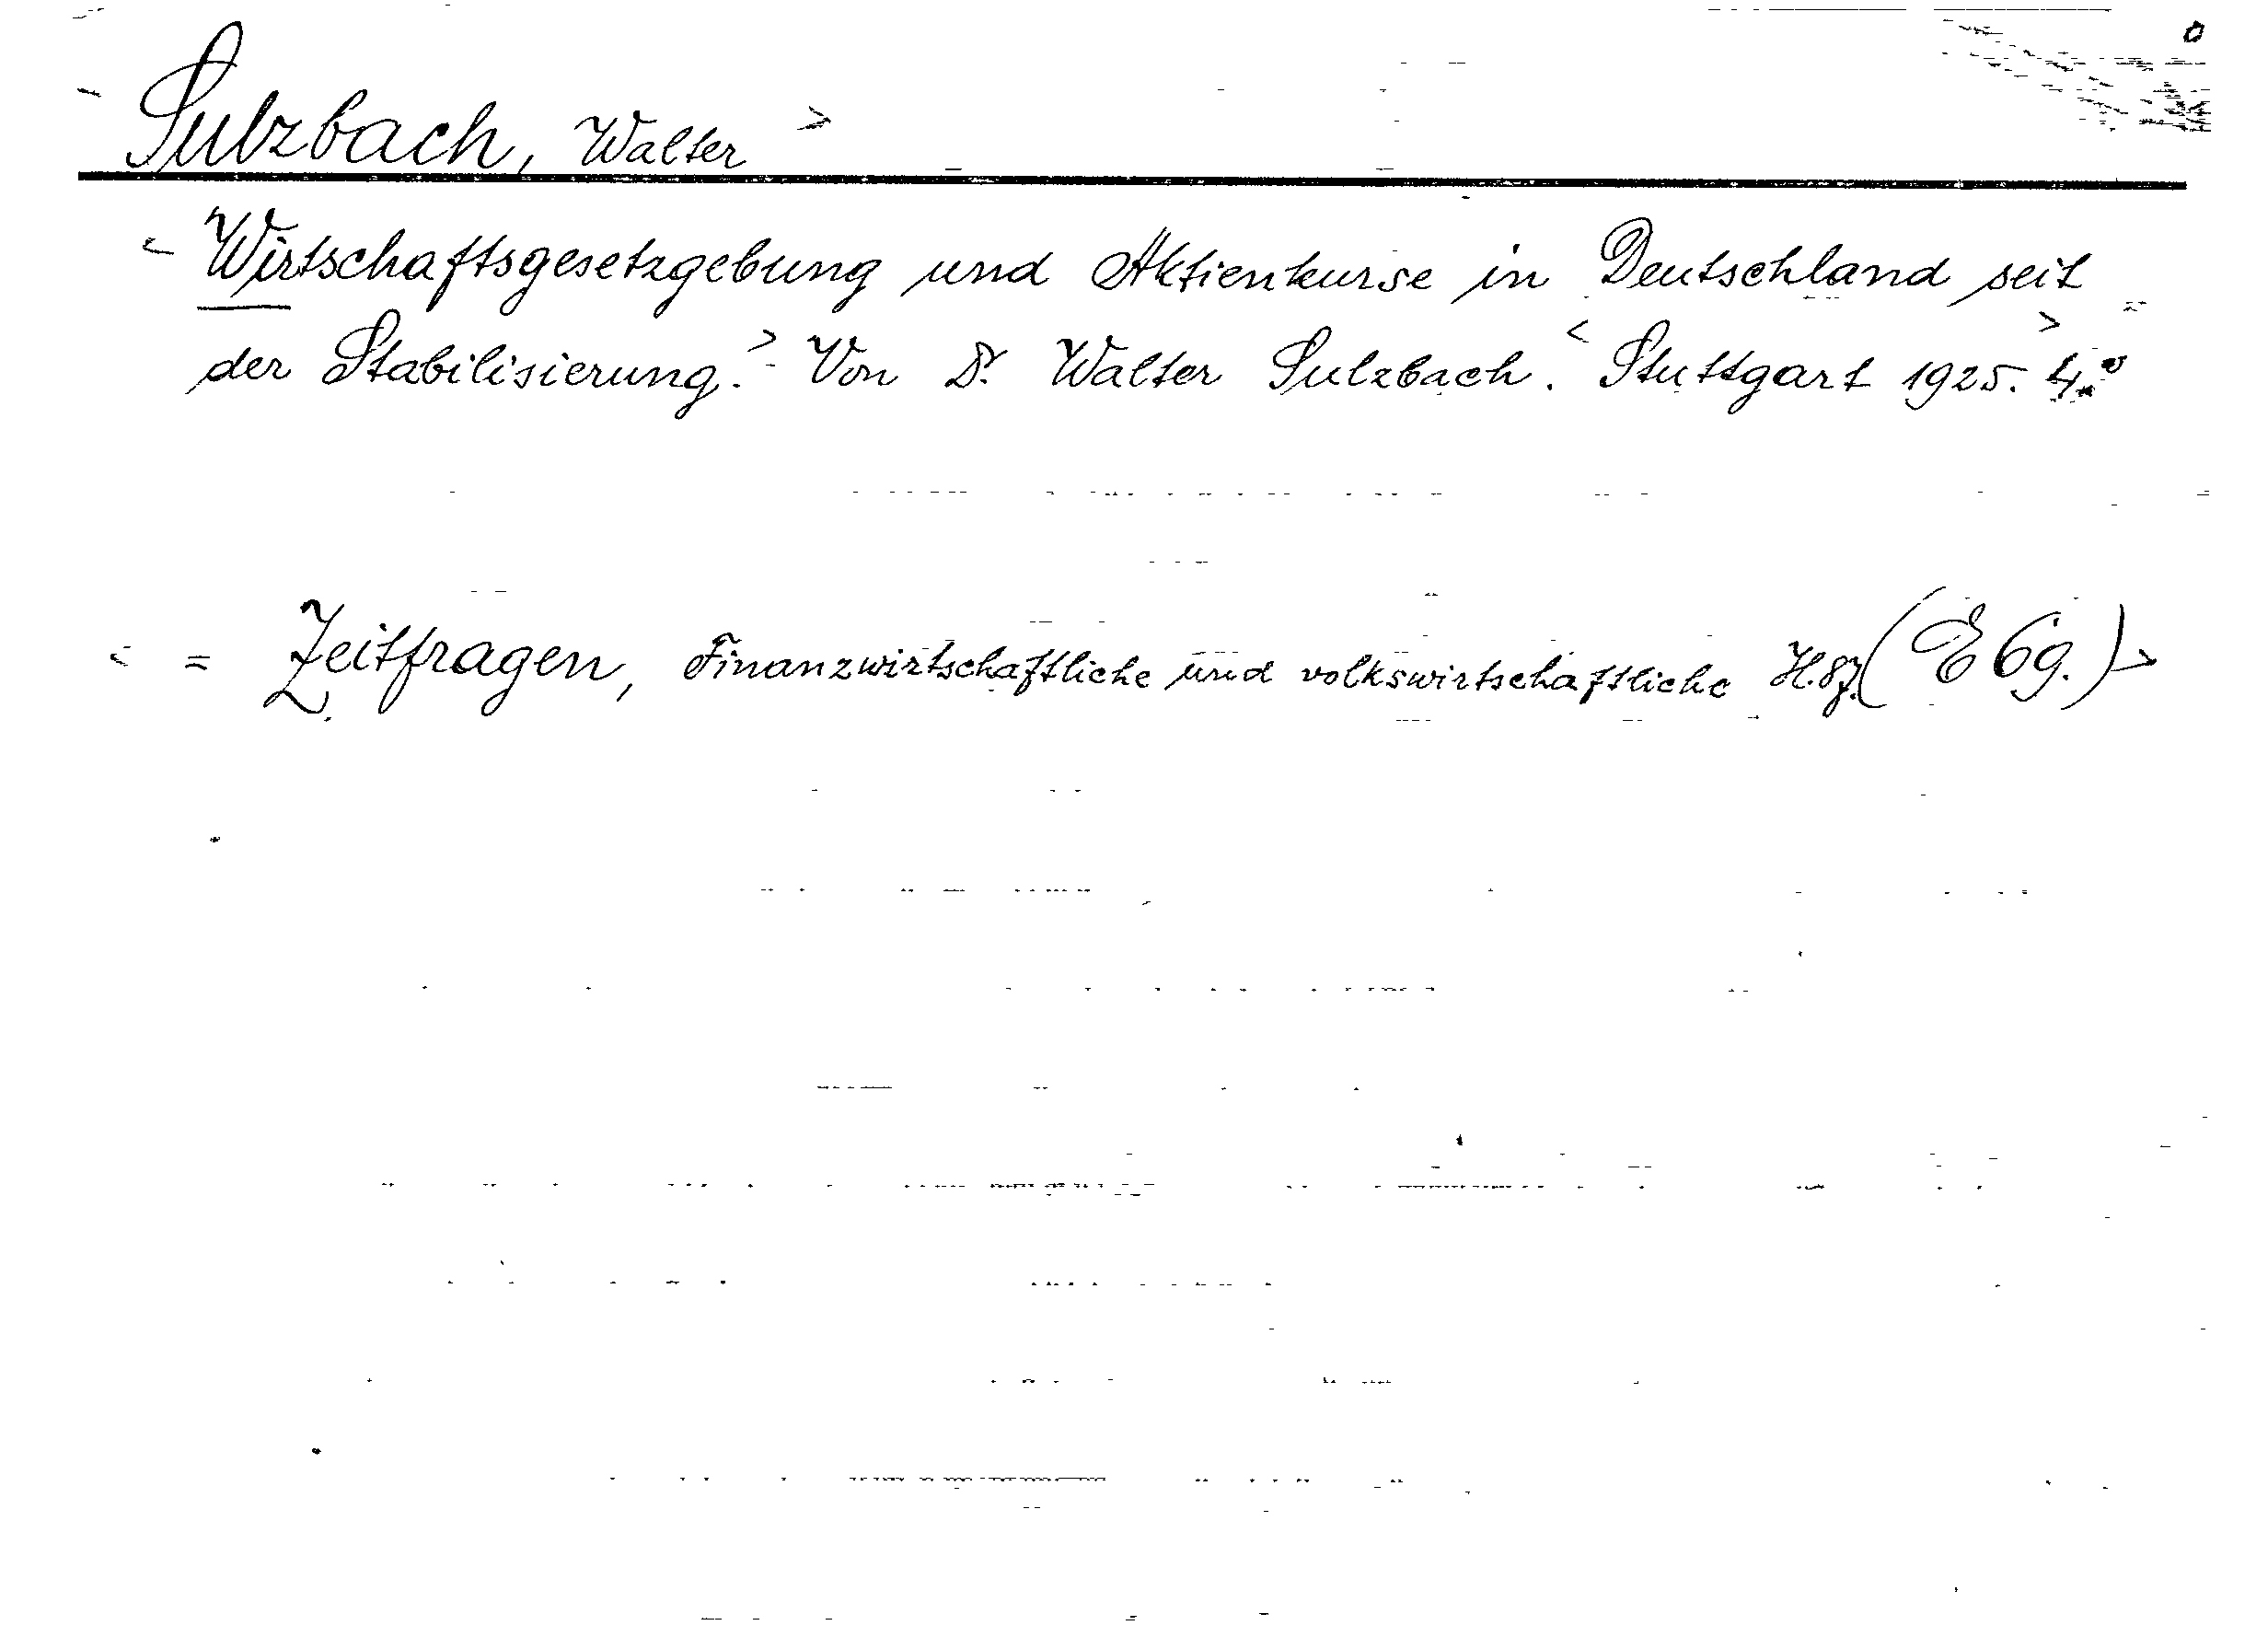 Sulzbach, Walter >
< Wirtschaftsgesetzgebung und Aktienkurse in Deutschland seit
der Stabilisierung. > Von Dr. Walter Sulzbach. < Stuttgart 1925. > 4.°
< = Zeitfragen, Finanzwirtschaftliche und volkswirtschaftliche H. 87. (E 6g.) >